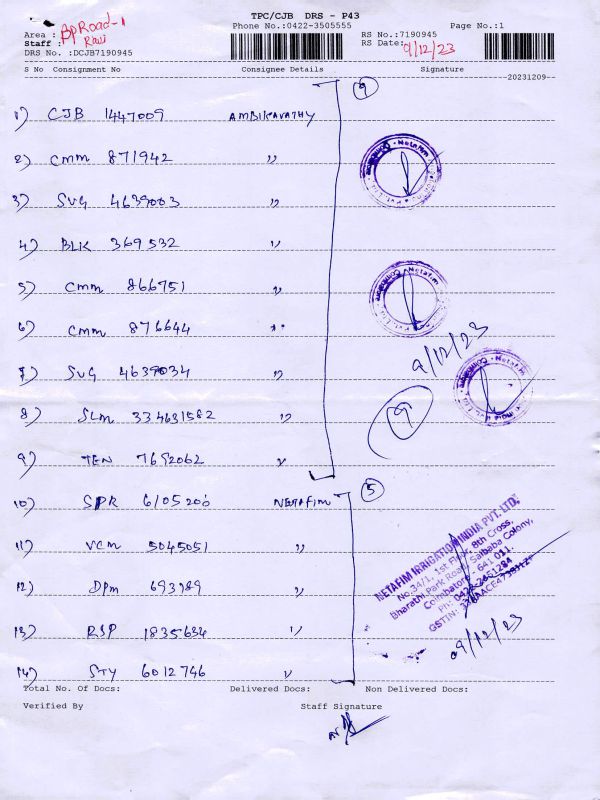 TPC/CJB DRS - P43
Phone No.:0422-3505555 Page No.:1
Area : BP Road-1
RS No.:7190945
Staff : Ravi
RS Date: 9/12/23
DRS No. :DCJB7190945
S No Consignment No Consignee Details Signature
20231209
9
1) CJB 1447009 AMBIKAVATHY
2) CMM 871942 "
3) SVG 4639003 "
4) BLK 369532 "
5) CMM 866751 "
6) CMM 876644 "
9/12/23
7) SVG 4639034 "
8) SLM 334631582 "
9
9) TEN 7692062 "
10) SPR 6105206 NETAFIM
5
NETAFIM IRRIGATION INDIA PVT. LTD.
No.34/1, 1st Floor, 8th Cross,
Bharathi Park Road, Saibaba Colony,
Coimbatore - 641 011.
Ph: 0422-2651284
11) VCM 5045051 "
12) DPM 693789 "
13) RSP 1835634 "
09/12/23
14) STY 6012746 "
Total No. Of Docs: Delivered Docs: Non Delivered Docs:
Verified By Staff Signature